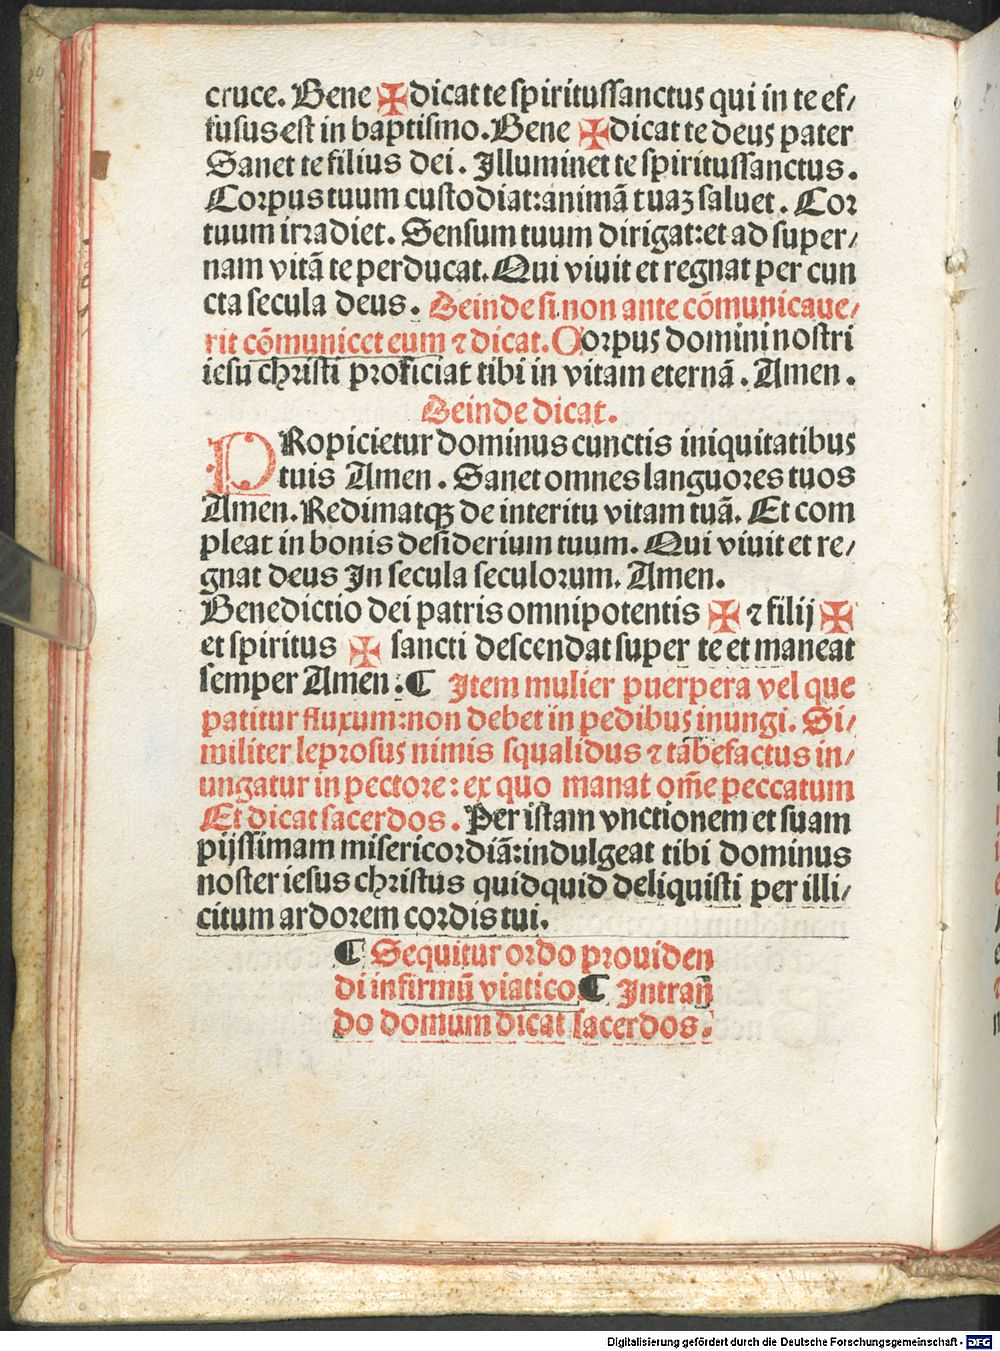 cruce. Bene ✠ dicat te spiritussanctus qui in te ef/
fusus est in baptismo. Bene ✠ dicat te deus pater
Sanet te filius dei. Illuminet te spiritussanctus.
Corpus tuum custodiat: animā tuaꝫ saluet. Cor
tuum irradiet. Sensum tuum dirigat: et ad super/
nam vitā te perducat. Qui viuit et regnat per cun
cta secula deus. Deinde si non ante cōmunicaue/
rit cōmunicet eum ⁊ dicat. Corpus domini nostri
iesu christi proficiat tibi in vitam eternā. Amen.
Deinde dicat.
PRopicietur dominus cunctis iniquitatibus
tuis Amen. Sanet omnes languores tuos
Amen. Redimatqꝫ de interitu vitam tuā. Et com
pleat in bonis desiderium tuum. Qui viuit et re/
gnat deus In secula seculorum. Amen.
Benedictio dei patris omnipotentis ✠ ⁊ filij ✠
et spiritus ✠ sancti descendat super te et maneat
semper Amen: ¶ Item mulier puerpera vel que
patitur fluxum: non debet in pedibus inungi. Si/
militer leprosus nimis squalidus ⁊ tabefactus in/
ungatur in pectore: ex quo manat om̄e peccatum
Et dicat sacerdos. Per istam vnctionem et suam
pijssimam misericordiā: indulgeat tibi dominus
noster iesus christus quidquid deliquisti per illi/
citum ardorem cordis tui.
¶ Sequitur ordo prouiden
di infirmū viatico ¶ Intran̄
do domum dicat sacerdos.
24
Digitalisierung gefördert durch die Deutsche Forschungsgemeinschaft - DFG